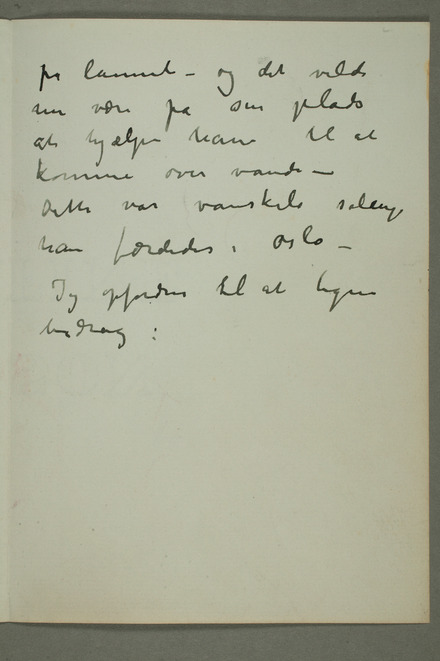 på lannet – og det vilde
nu være på sin plads
at hjælpe ham til at
komme over vande –
Dette var vanskeli sålenge
han færdedes i Oslo –
Jeg opfordres til at tegne
bidrag :